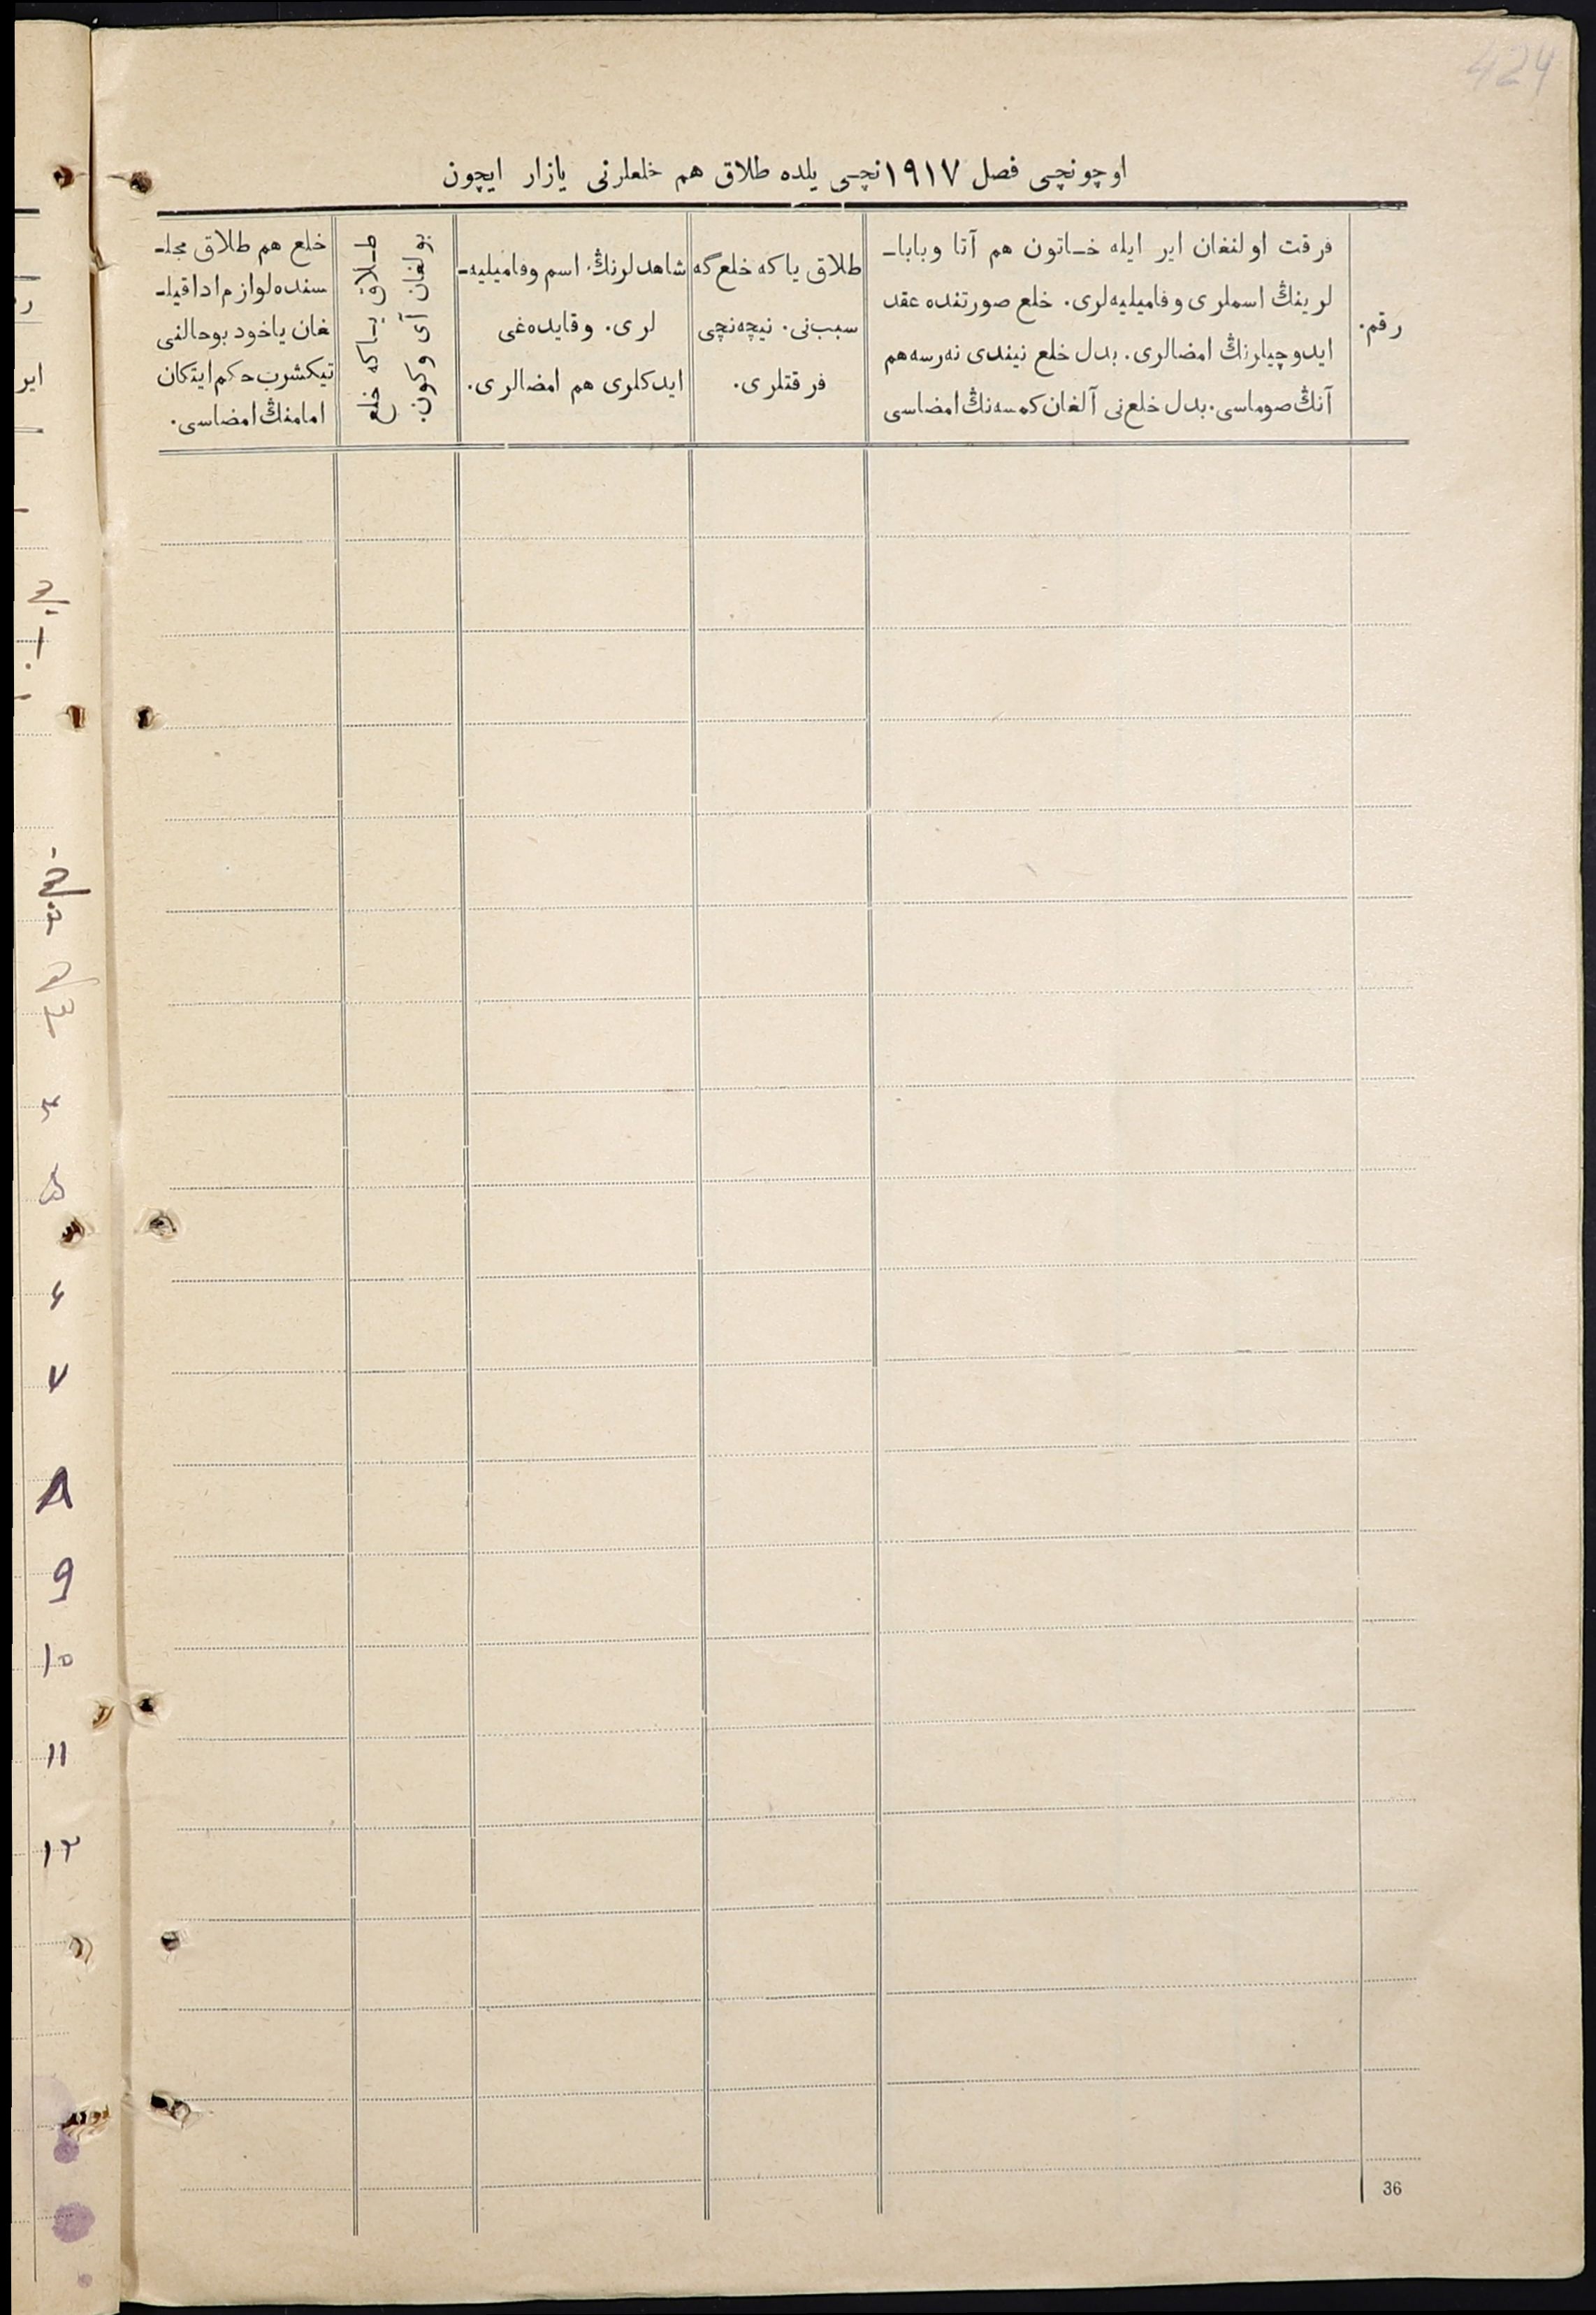 424
اوچونچی فصل ١٩١٧نچی يلده طلاق هم خلعلرنی يازار ايچون
رقم.
فرقت اولنغان اير ايله خـاتون هم آتا وبابا-
لرينڭ اسملری وفاميليه‌لری. خلع صورتنده عقد
ايدوچيلرنڭ امضالری. بدل خلع نيندی نه‌رسه هم
آنڭ صوماسی. بدل خلع‌نی آلغان كمسه‌نڭ امضاسی
طلاق ياكه خلع‌گه
سبب‌نی. نيچه‌نچی
فرقتلری.
شاهدلرنڭ اسم وفاميليه-
لری. وقايده‌غی
ايدكلری هم امضالری.
طـلاق يـاكه خلع
بولغان آی وكون.
خلع هم طلاق مجلـ
سنده لوازم ادا قيلـ
غان ياخود بوحالنی
تيكشرب حكم ايتكان
امامنڭ امضاسی.
اير
۶
٧
٨
9
١٠
١١
١٢
36